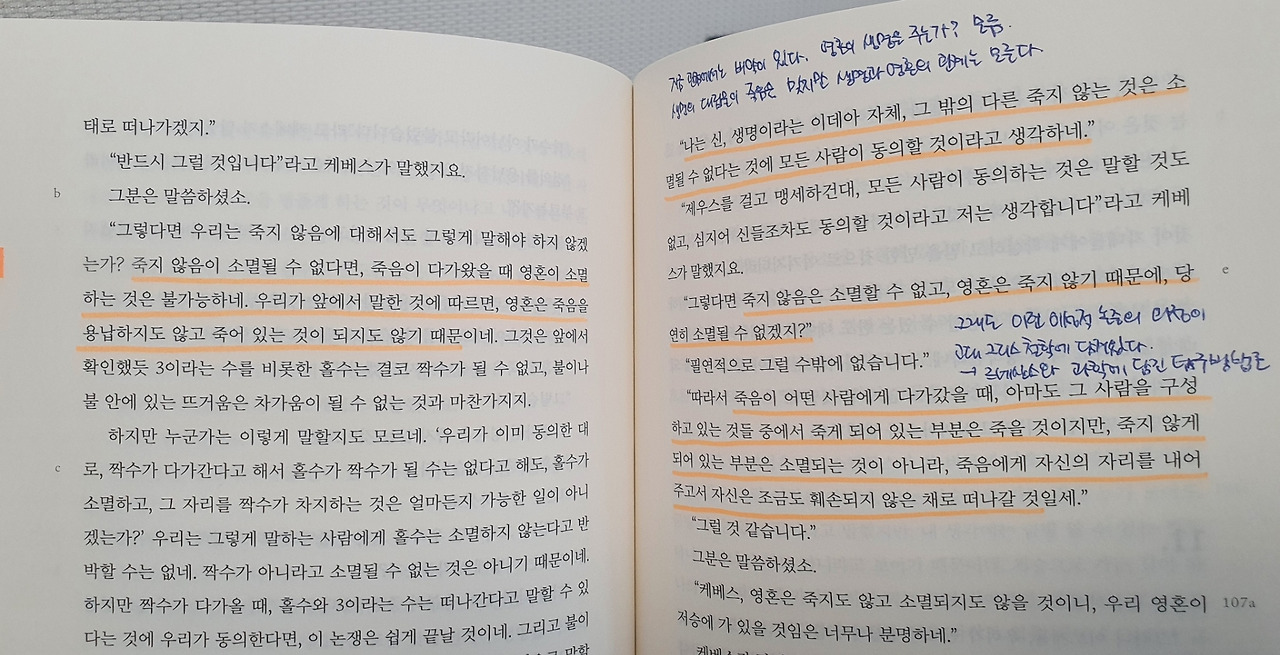 태로 떠나가겠지.”
“반드시 그럴 것입니다”라고 케베스가 말했지요.
b
그분은 말씀하셨소.
“그렇다면 우리는 죽지 않음에 대해서도 그렇게 말해야 하지 않겠
는가? 죽지 않음이 소멸될 수 없다면, 죽음이 다가왔을 때 영혼이 소멸
하는 것은 불가능하네. 우리가 앞에서 말한 것에 따르면, 영혼은 죽음을
용납하지도 않고 죽어 있는 것이 되지도 않기 때문이네. 그것은 앞에서
확인했듯 3이라는 수를 비롯한 홀수는 결코 짝수가 될 수 없고, 불이나
불 안에 있는 뜨거움은 차가움이 될 수 없는 것과 마찬가지지.
하지만 누군가는 이렇게 말할지도 모르네. ‘우리가 이미 동의한 대
c
로, 짝수가 다가간다고 해서 홀수가 짝수가 될 수는 없다고 해도, 홀수가
소멸하고, 그 자리를 짝수가 차지하는 것은 얼마든지 가능한 일이 아니
겠는가?’ 우리는 그렇게 말하는 사람에게 홀수는 소멸하지 않는다고 반
박할 수는 없네. 짝수가 아니라고 소멸될 수 없는 것은 아니기 때문이네.
하지만 짝수가 다가올 때, 홀수와 3이라는 수는 떠나간다고 말할 수 있
다는 것에 우리가 동의한다면, 이 논쟁은 쉽게 끝날 것이네. 그리고 불이
지금 관점에서는 비약이 있다. 영혼이 생명을 주는가? 모름.
생명의 대립물이 죽음은 맞지만 생명과 영혼의 관계는 모른다
“나는 신, 생명이라는 이데아 자체, 그 밖의 다른 죽지 않는 것은 소
멸될 수 없다는 것에 모든 사람이 동의할 것이라고 생각하네.”
“제우스를 걸고 맹세하건대, 모든 사람이 동의하는 것은 말할 것도
없고, 심지어 신들조차도 동의할 것이라고 저는 생각합니다”라고 케베
스가 말했지요.
e
“그렇다면 죽지 않음은 소멸할 수 없고, 영혼은 죽지 않기 때문에, 당
연히 소멸될 수 없겠지?”
그래도 이런 이성적 논증의 과정이
“필연적으로 그럴 수밖에 없습니다.”
고대 그리스 철학에 담겨있다
→ 르네상스와 과학에 담긴 탐구방법론
“따라서 죽음이 어떤 사람에게 다가갔을 때, 아마도 그 사람을 구성
하고 있는 것들 중에서 죽게 되어 있는 부분은 죽을 것이지만, 죽지 않게
되어 있는 부분은 소멸되는 것이 아니라, 죽음에게 자신의 자리를 내어
주고서 자신은 조금도 훼손되지 않은 채로 떠나갈 것일세.”
“그럴 것 같습니다.”
그분은 말씀하셨소.
“케베스, 영혼은 죽지도 않고 소멸되지도 않을 것이니, 우리 영혼이
107a
저승에 가 있을 것임은 너무나 분명하네.”